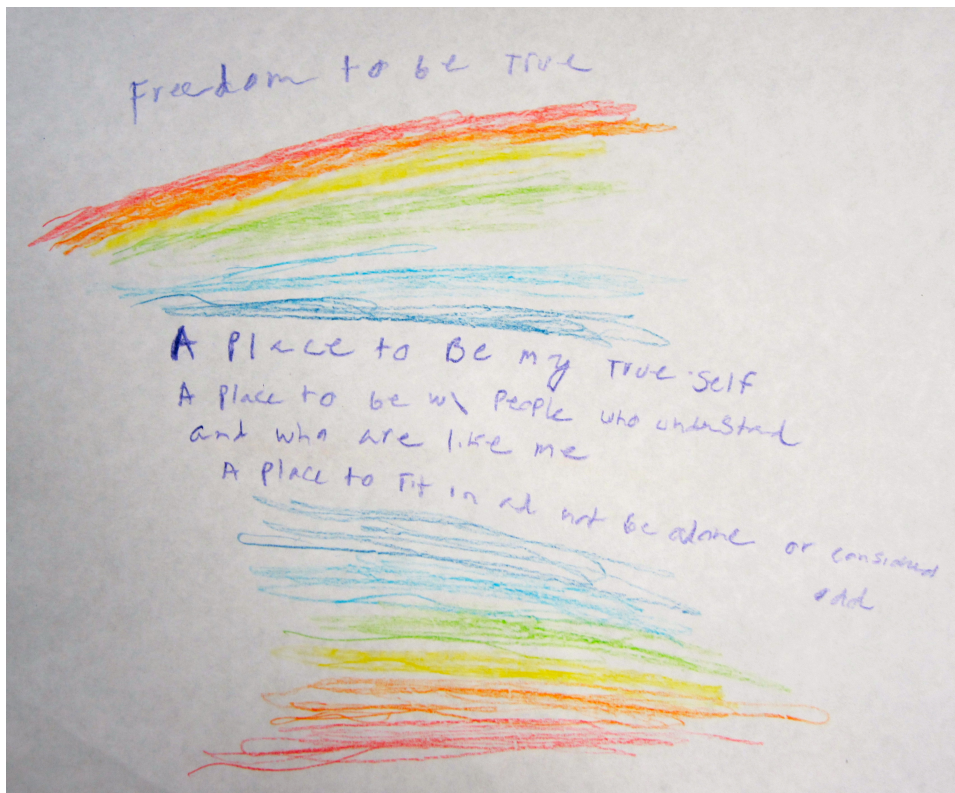 Freedom to be True
A Place to Be my True Self
A place to be w\ people who understand
and who are like me
A place to Fit in ad not be alone or considered
odd